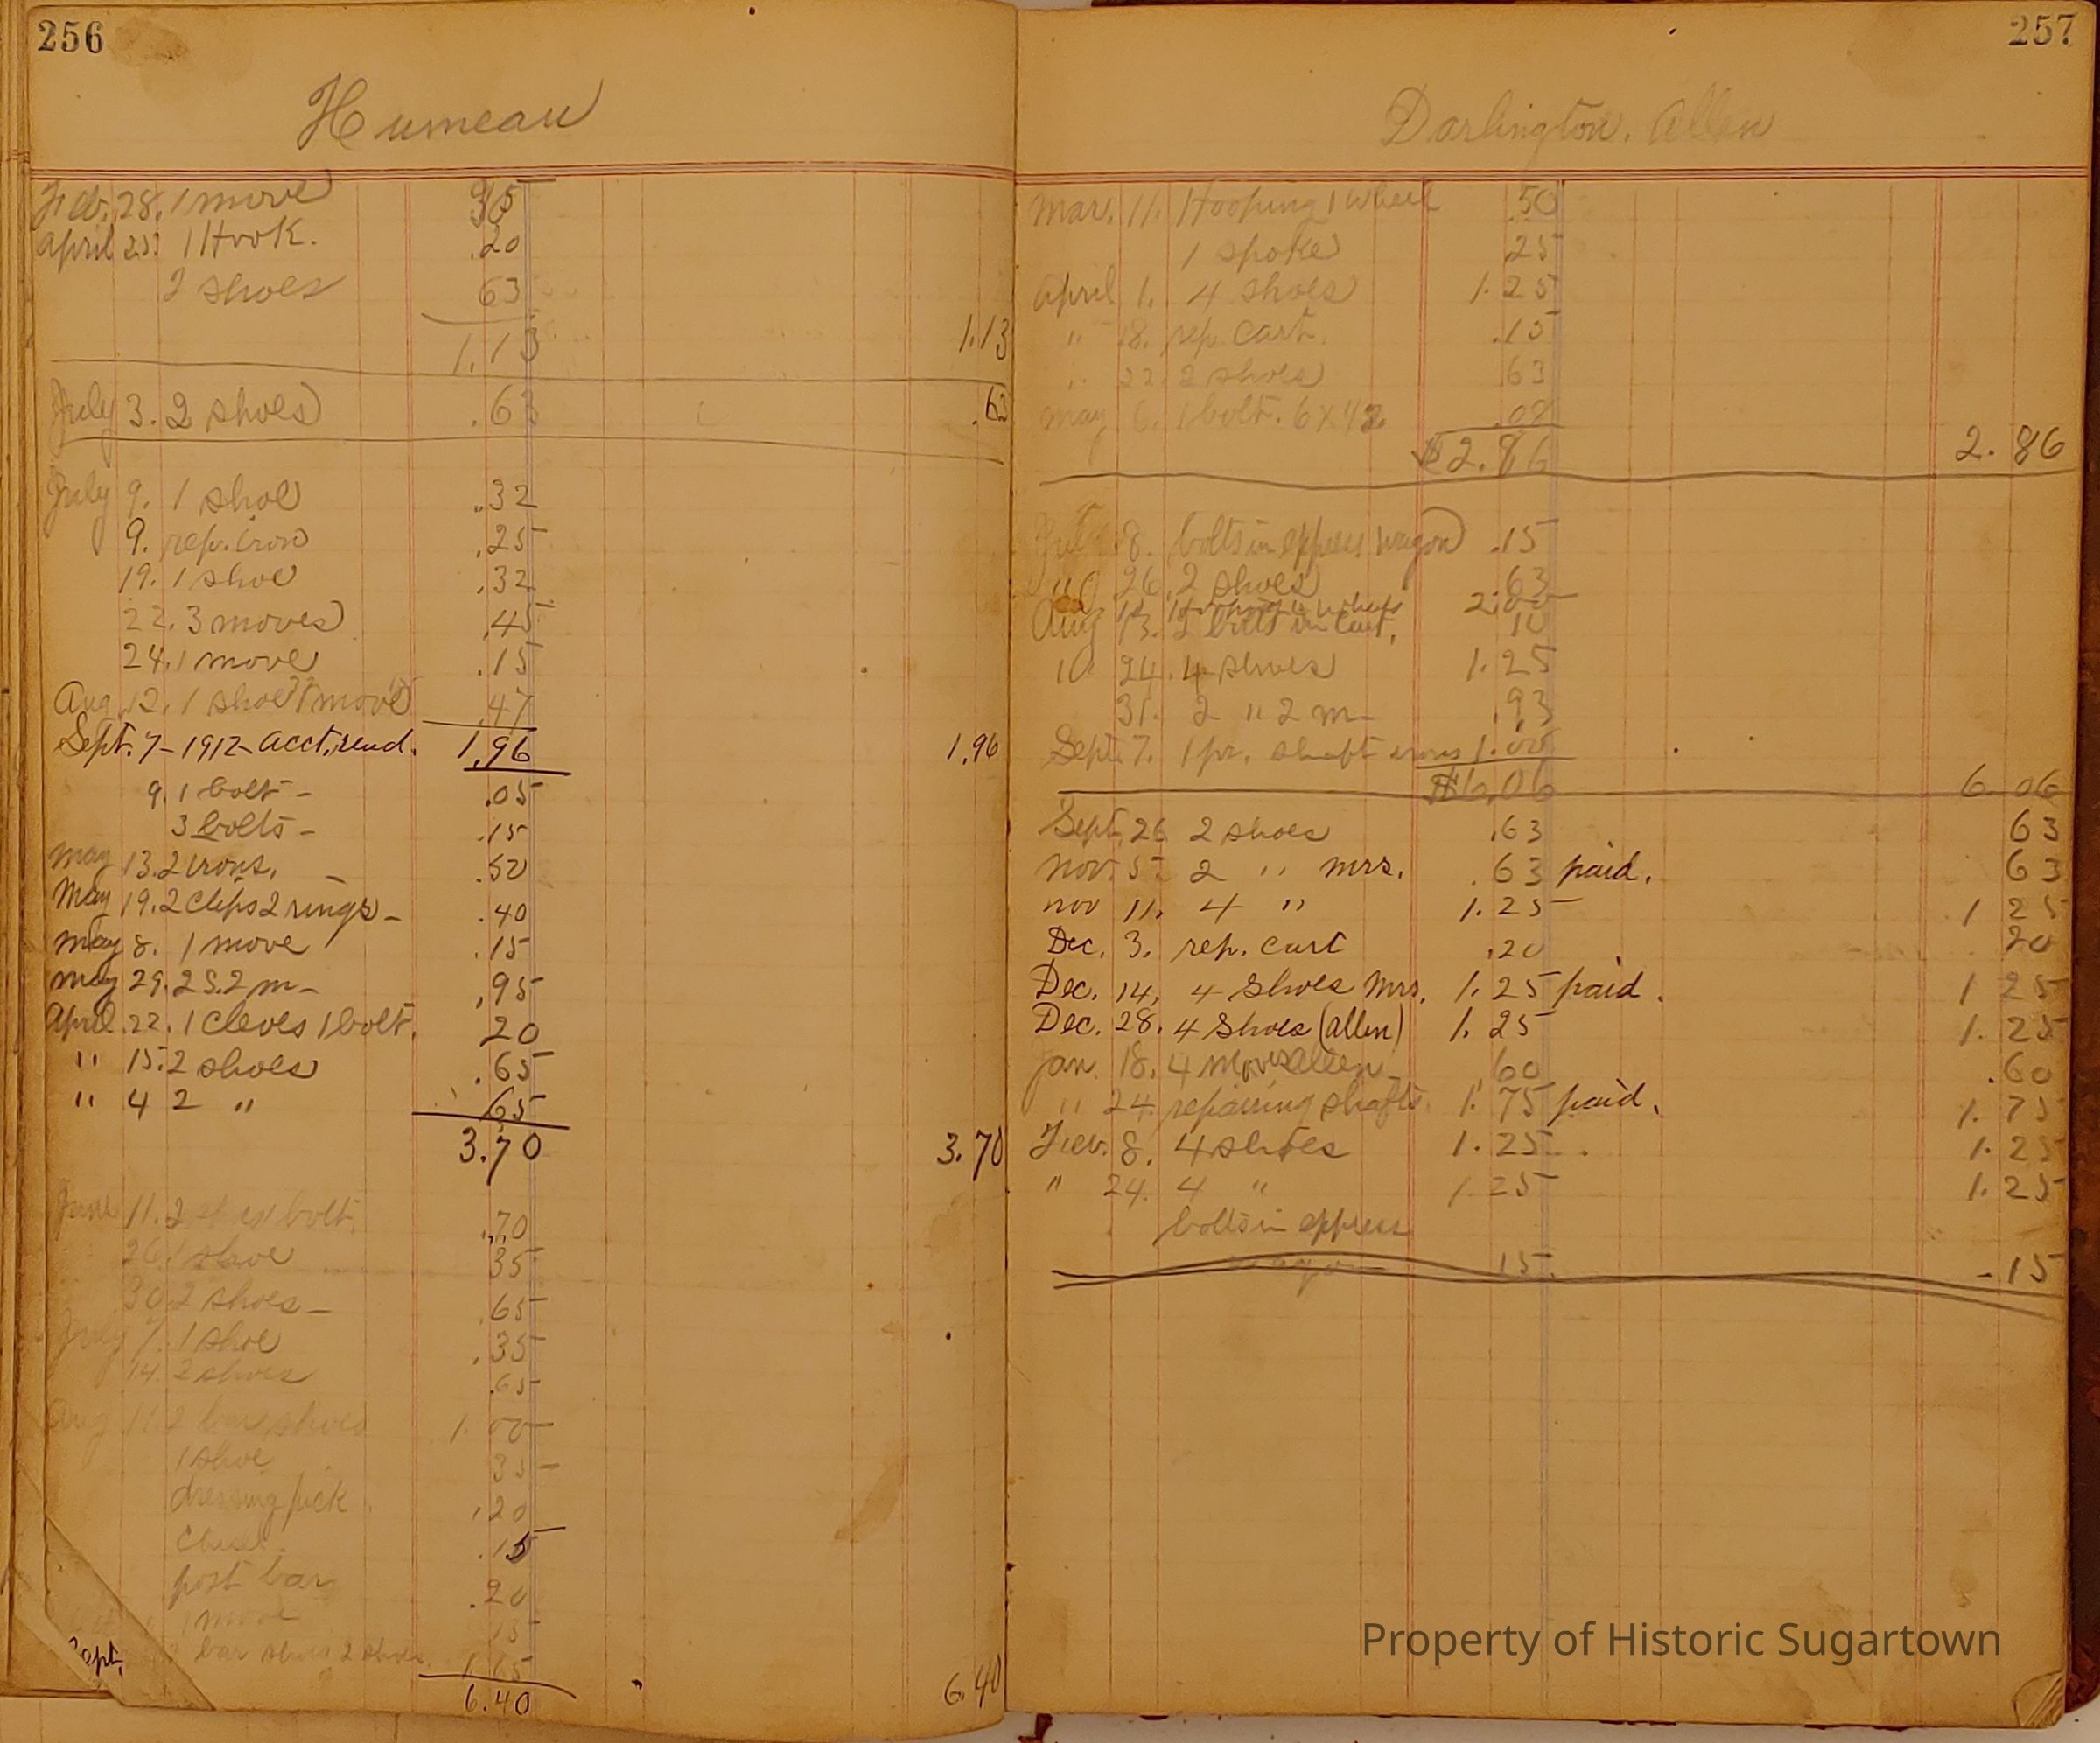 256
Humeau
Feb. 28. 1 move
April 25. 1 Hook. .20
2 shoes 63
1.13 1.13
July 3. 2 shoes .63 .63
July 9. 1 shoe .32
9. rep. iron .25
19. 1 shoe .32
22. 3 moves .45
24. 1 move .15
Aug. 12. 1 shoe 1 move .47
Sept. 7 - 1912 - acct. rend. 1.96 1.96
9. 1 bolt - .05
3 bolts - .15
May 13. 2 irons. .50
May 19. 2 clips 2 rings - .40
May 8. 1 move .15
May 29. 2 S. 2 m - .95
April. 22. 1 cleves 1 bolt. 20
" 15. 2 shoes .65
" 4 2 " 65
3.70 3.70
June 11. 2 bolt. .70
26. 1 shoe 35
30 2 shoes - .65
July 7. 1 shoe .35
14. 2 shoes .65
Aug 11. 2 bar shoes 1.00
1 shoe 35
dressing pick .20
Chisel. .15
post bar .20
1 move 15
Sept. bar shoes 2 shoes 1.65
6.40 6.40
257
Darlington. Allen
Mar. 11. Hooping 1 wheel .50
1 spoke 25
April 1. 4 shoes 1.25
" 8. rep. cart. .15
" 22. 2 shoes 63
May 6. 1 bolt. .08
$2.86 2.86
July 8. bolts in express wagon .15
" 26. 2 shoes .63
Aug 12. Hooping 4 wheels 2.00
13. 2 bolts in cart. 10
" 24. 4 shoes 1.25
31. 2 " 2 m - .93
Sept. 7. 1 pr. shaft irons 1.00
$6.06 6.06
Sept. 26 2 shoes .63 63
Nov. 5 - 2 " Mrs. .63 paid. 63
Nov 11. 4 " 1.25 1 25
Dec. 3. rep. cart .20 20
Dec. 14, 4 shoes Mrs. 1.25 paid. 1 25
Dec. 28. 4 Shoes (allen) 1.25 1.25
Jan. 18. 4 moves allen 60 .60
" 24. repairing shafts. 1.75 paid. 1.75
Feb. 8. 4 shoes 1.25 1.25
" 24. 4 " 1.25 1.25
bolts in express
wagon 15 - 15
Property of Historic Sugartown